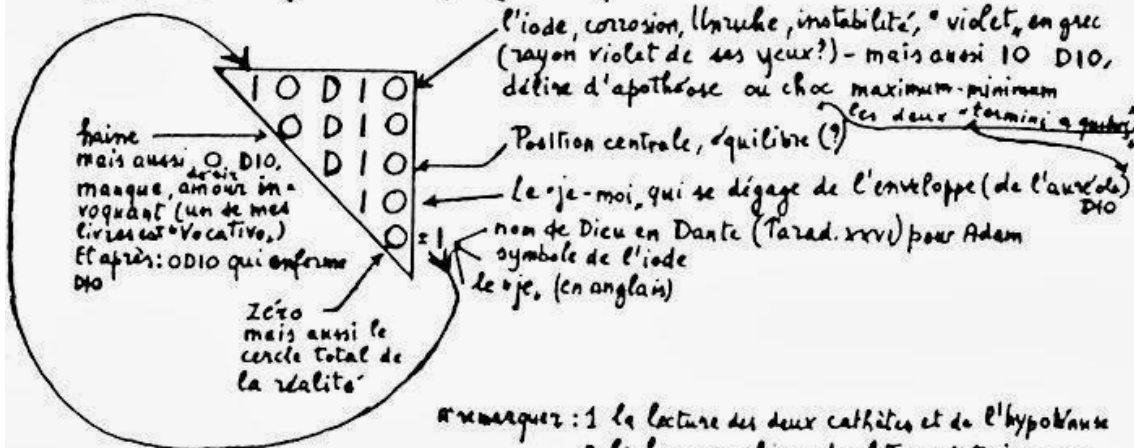 l'iode, corrosion, Unruhe, instabilité, "violet" en grec
(rayon violet de ses yeux?) - mais aussi IO DIO,
délire d'apothéose ou choc maximum-minimum
les deux "termini a
I O D I O
O D I O
D I O
I O
O = I
haine
mais aussi O DIO,
désir
manque, amour in-
voquant (un de mes
livres est "Vocativo")
Et après: ODIO qui enferme
DIO
Position centrale, équilibre (?)
Le "je-moi" qui se dégage de l'enveloppe (de l'auréole)
DIO
nom de Dieu en Dante (Parad. XXVI) pour Adam
symbole de l'iode
le "je" (en anglais)
zéro
mais aussi le
cercle total de
la réalité
remarquer : 1 la lecture des deux cathètes et de l'hypoténuse